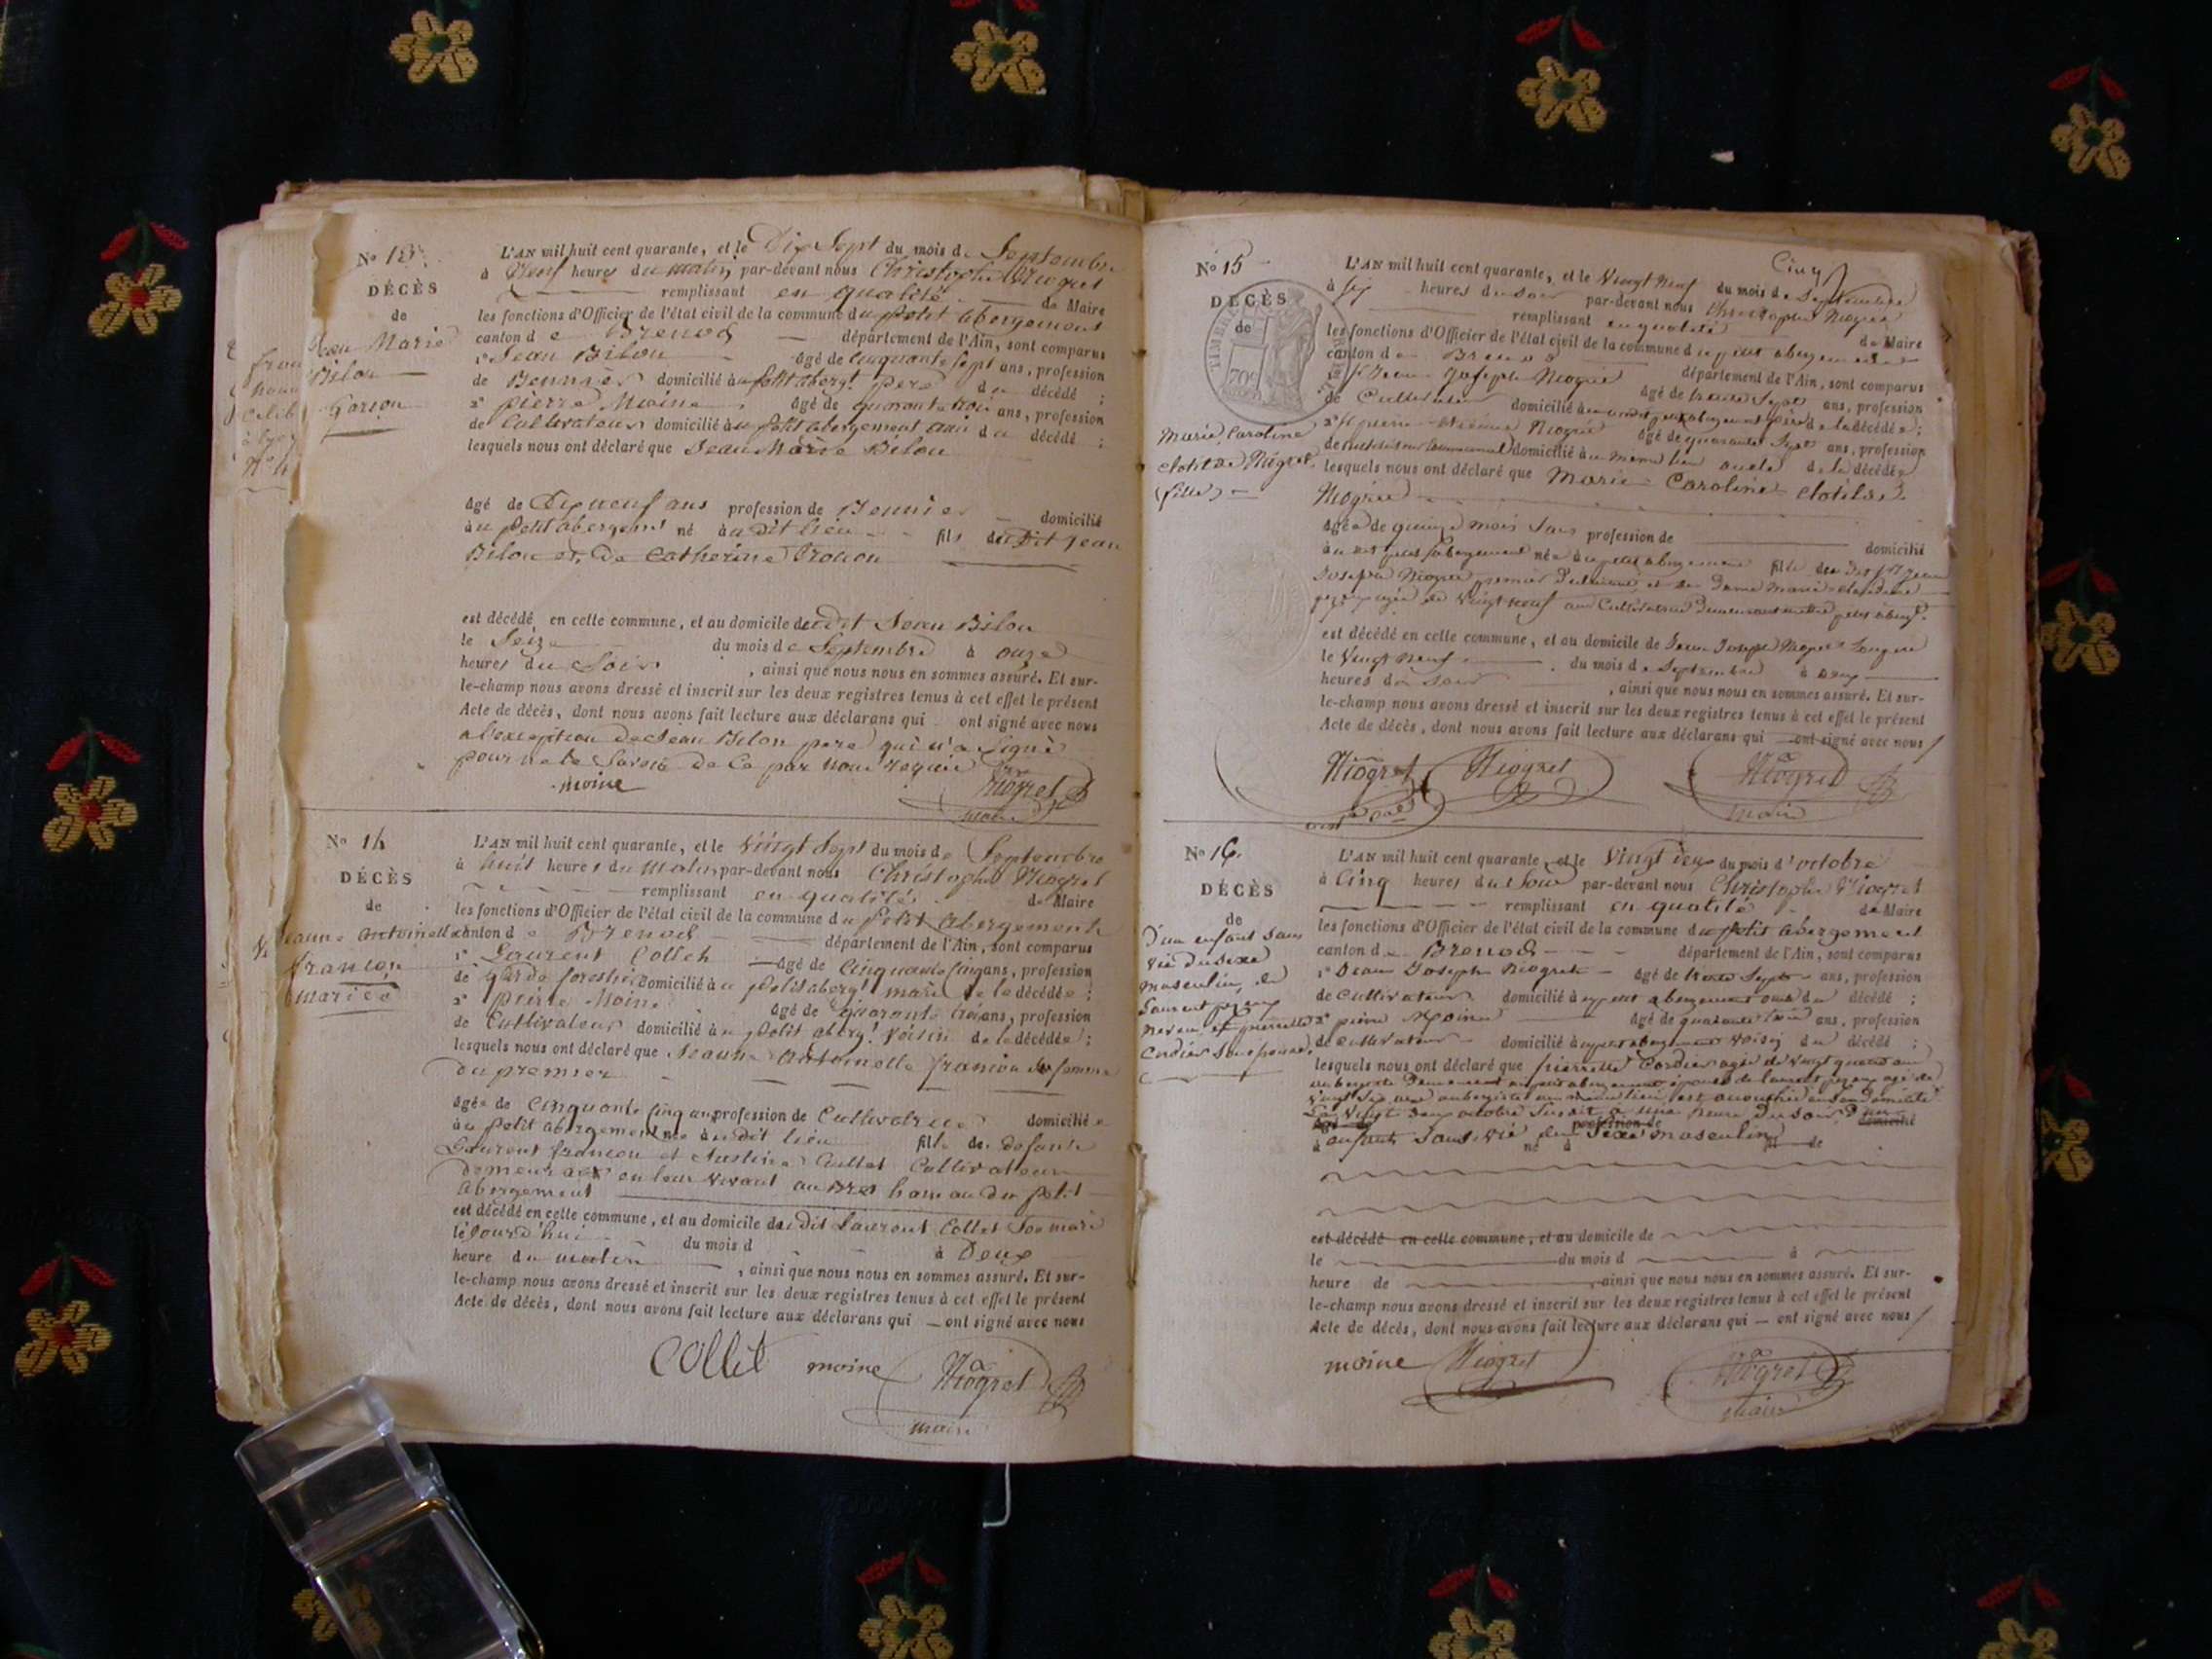 No 13
DÉCÈS
de
Jean Marie
Bilon
Garçon
L'AN mil huit cent quarante, et le Dix Sept du mois de Septembre
à Neuf heures du matin par-devant nous Christophe Niogret
remplissant en qualité de Maire
les fonctions d'Officier de l'état civil de la commune du petit abergement
canton de Brenod département de l'Ain, sont comparus
1° Jean Bilon âgé de Cinquante Sept ans, profession
de domicilié au petit aberg.t père du décédé ;
2° pierre Moine âgé de quarante trois ans, profession
de Cultivateur domicilié au petit abergement ami du décédé ;
lesquels nous ont déclaré que Jean Marie Bilon
âgé de Dix neuf ans profession de domicilié
au petit abergement né au dit lieu fils du Dit Jean
Bilon et de Catherine
est décédé en cette commune, et au domicile dudit Jean Bilon
le Seize du mois de Septembre à onze
heures du Soir , ainsi que nous nous en sommes assuré. Et sur-
le-champ nous avons dressé et inscrit sur les deux registres tenus à cet effet le présent
Acte de décès, dont nous avons fait lecture aux déclarans qui ont signé avec nous
a l'exception de Jean Bilon pere qui n'a Signé
pour ne le Savoir de Ce par nous requis
moine Niogret
maire
No 14
DÉCÈS
de
Jeanne antoinette
françon
mariée
L'AN mil huit cent quarante, et le Vingt Sept du mois de Septembre
à huit heures du Matin par-devant nous Christophe Niogret
remplissant en qualité de Maire
les fonctions d'Officier de l'état civil de la commune du petit abergement
canton de Brenod département de l'Ain, sont comparus
1° Laurent Collet âgé de Cinquante Cinq ans, profession
de garde forestier domicilié au petit aberg.t mari de la décédée ;
2° pierre Moine âgé de quarante trois ans, profession
de Cultivateur domicilié au petit aberg.t voisin de la décédée ;
lesquels nous ont déclaré que Jeanne antoinette françon femme
du premier
âgée de Cinquante Cinq ans profession de Cultivatrice domiciliée
au petit abergement née au dit lieu fille de defunts
Laurent françon et Justine Cultivateurs
demeurant en leur vivant au hameau du petit
abergement
est décédé en cette commune, et au domicile du dit Laurent Collet Son mari
le Jourd'hui du mois d à Deux
heure du matin , ainsi que nous nous en sommes assuré. Et sur-
le-champ nous avons dressé et inscrit sur les deux registres tenus à cet effet le présent
Acte de décès, dont nous avons fait lecture aux déclarans qui ont signé avec nous
Collet moine Niogret
maire
Cinq
No 15
DÉCÈS
de
Marie Caroline
clotilde Niogret
(fille)
L'AN mil huit cent quarante, et le Vingt Neuf du mois de Septembre
à six heures du soir par-devant nous Christophe Niogret
remplissant en qualité de Maire
les fonctions d'Officier de l'état civil de la commune du petit abergement
canton de Brenod département de l'Ain, sont comparus
Jean Joseph Niogret âgé de trente Sept ans, profession
de Cultivateur domicilié au dit petit abergement père de la décédée ;
2° pierre Niogret âgé de quarante Sept ans, profession
de domicilié au meme lieu oncle de la décédée
lesquels nous ont déclaré que Marie Caroline Clotilde
Niogret
âgée de quinze mois Sans profession de domicilié
au dit petit abergement née au petit abergement fille du dit Jean
Joseph Niogret premier déclarant, et de Dame Marie
agée de Vingt neuf ans Cultivatrice
est décédé en cette commune, et au domicile de Jean Joseph Niogret
le Vingt Neuf du mois de Septembre à deux
heures du Soir , ainsi que nous nous en sommes assuré. Et sur-
le-champ nous avons dressé et inscrit sur les deux registres tenus à cet effet le présent
Acte de décès, dont nous avons fait lecture aux déclarans qui ont signé avec nous
Niogret Niogret Niogret
maire
No 16
DÉCÈS
de
D'un enfant sans
vie du sexe
masculin, de
Laurent
et pierrette
Cordier Son épouse
L'AN mil huit cent quarante, et le Vingt deux du mois d'octobre
à Cinq heures du Soir par-devant nous Christophe Niogret
remplissant en qualité de Maire
les fonctions d'Officier de l'état civil de la commune du petit abergement
canton de Brenod département de l'Ain, sont comparus
1° Jean Joseph Niogret âgé de trente Sept ans, profession
de Cultivateur domicilié au petit abergement oncle du décédé ;
2° pierre Moine âgé de quarante trois ans, profession
de cultivateur domicilié au petit abergement voisin du décédé ;
lesquels nous ont déclaré que pierrette Cordier agée de vingt quatre ans
aubergiste Demeurant au petit abergement épouse de laurent agé de
vingt Six ans aubergiste au meme lieu est accouchée en Son domicile
Le Vingt Deux octobre Susdit a une heure du soir D'un
âgé de profession de domicilié
à enfant Sans vie du Sexe masculin
né à fil de
est décédé en cette commune, et au domicile de
le du mois d à
heure de , ainsi que nous nous en sommes assuré. Et sur-
le-champ nous avons dressé et inscrit sur les deux registres tenus à cet effet le présent
Acte de décès, dont nous avons fait lecture aux déclarans qui ont signé avec nous
moine Niogret Niogret
maire